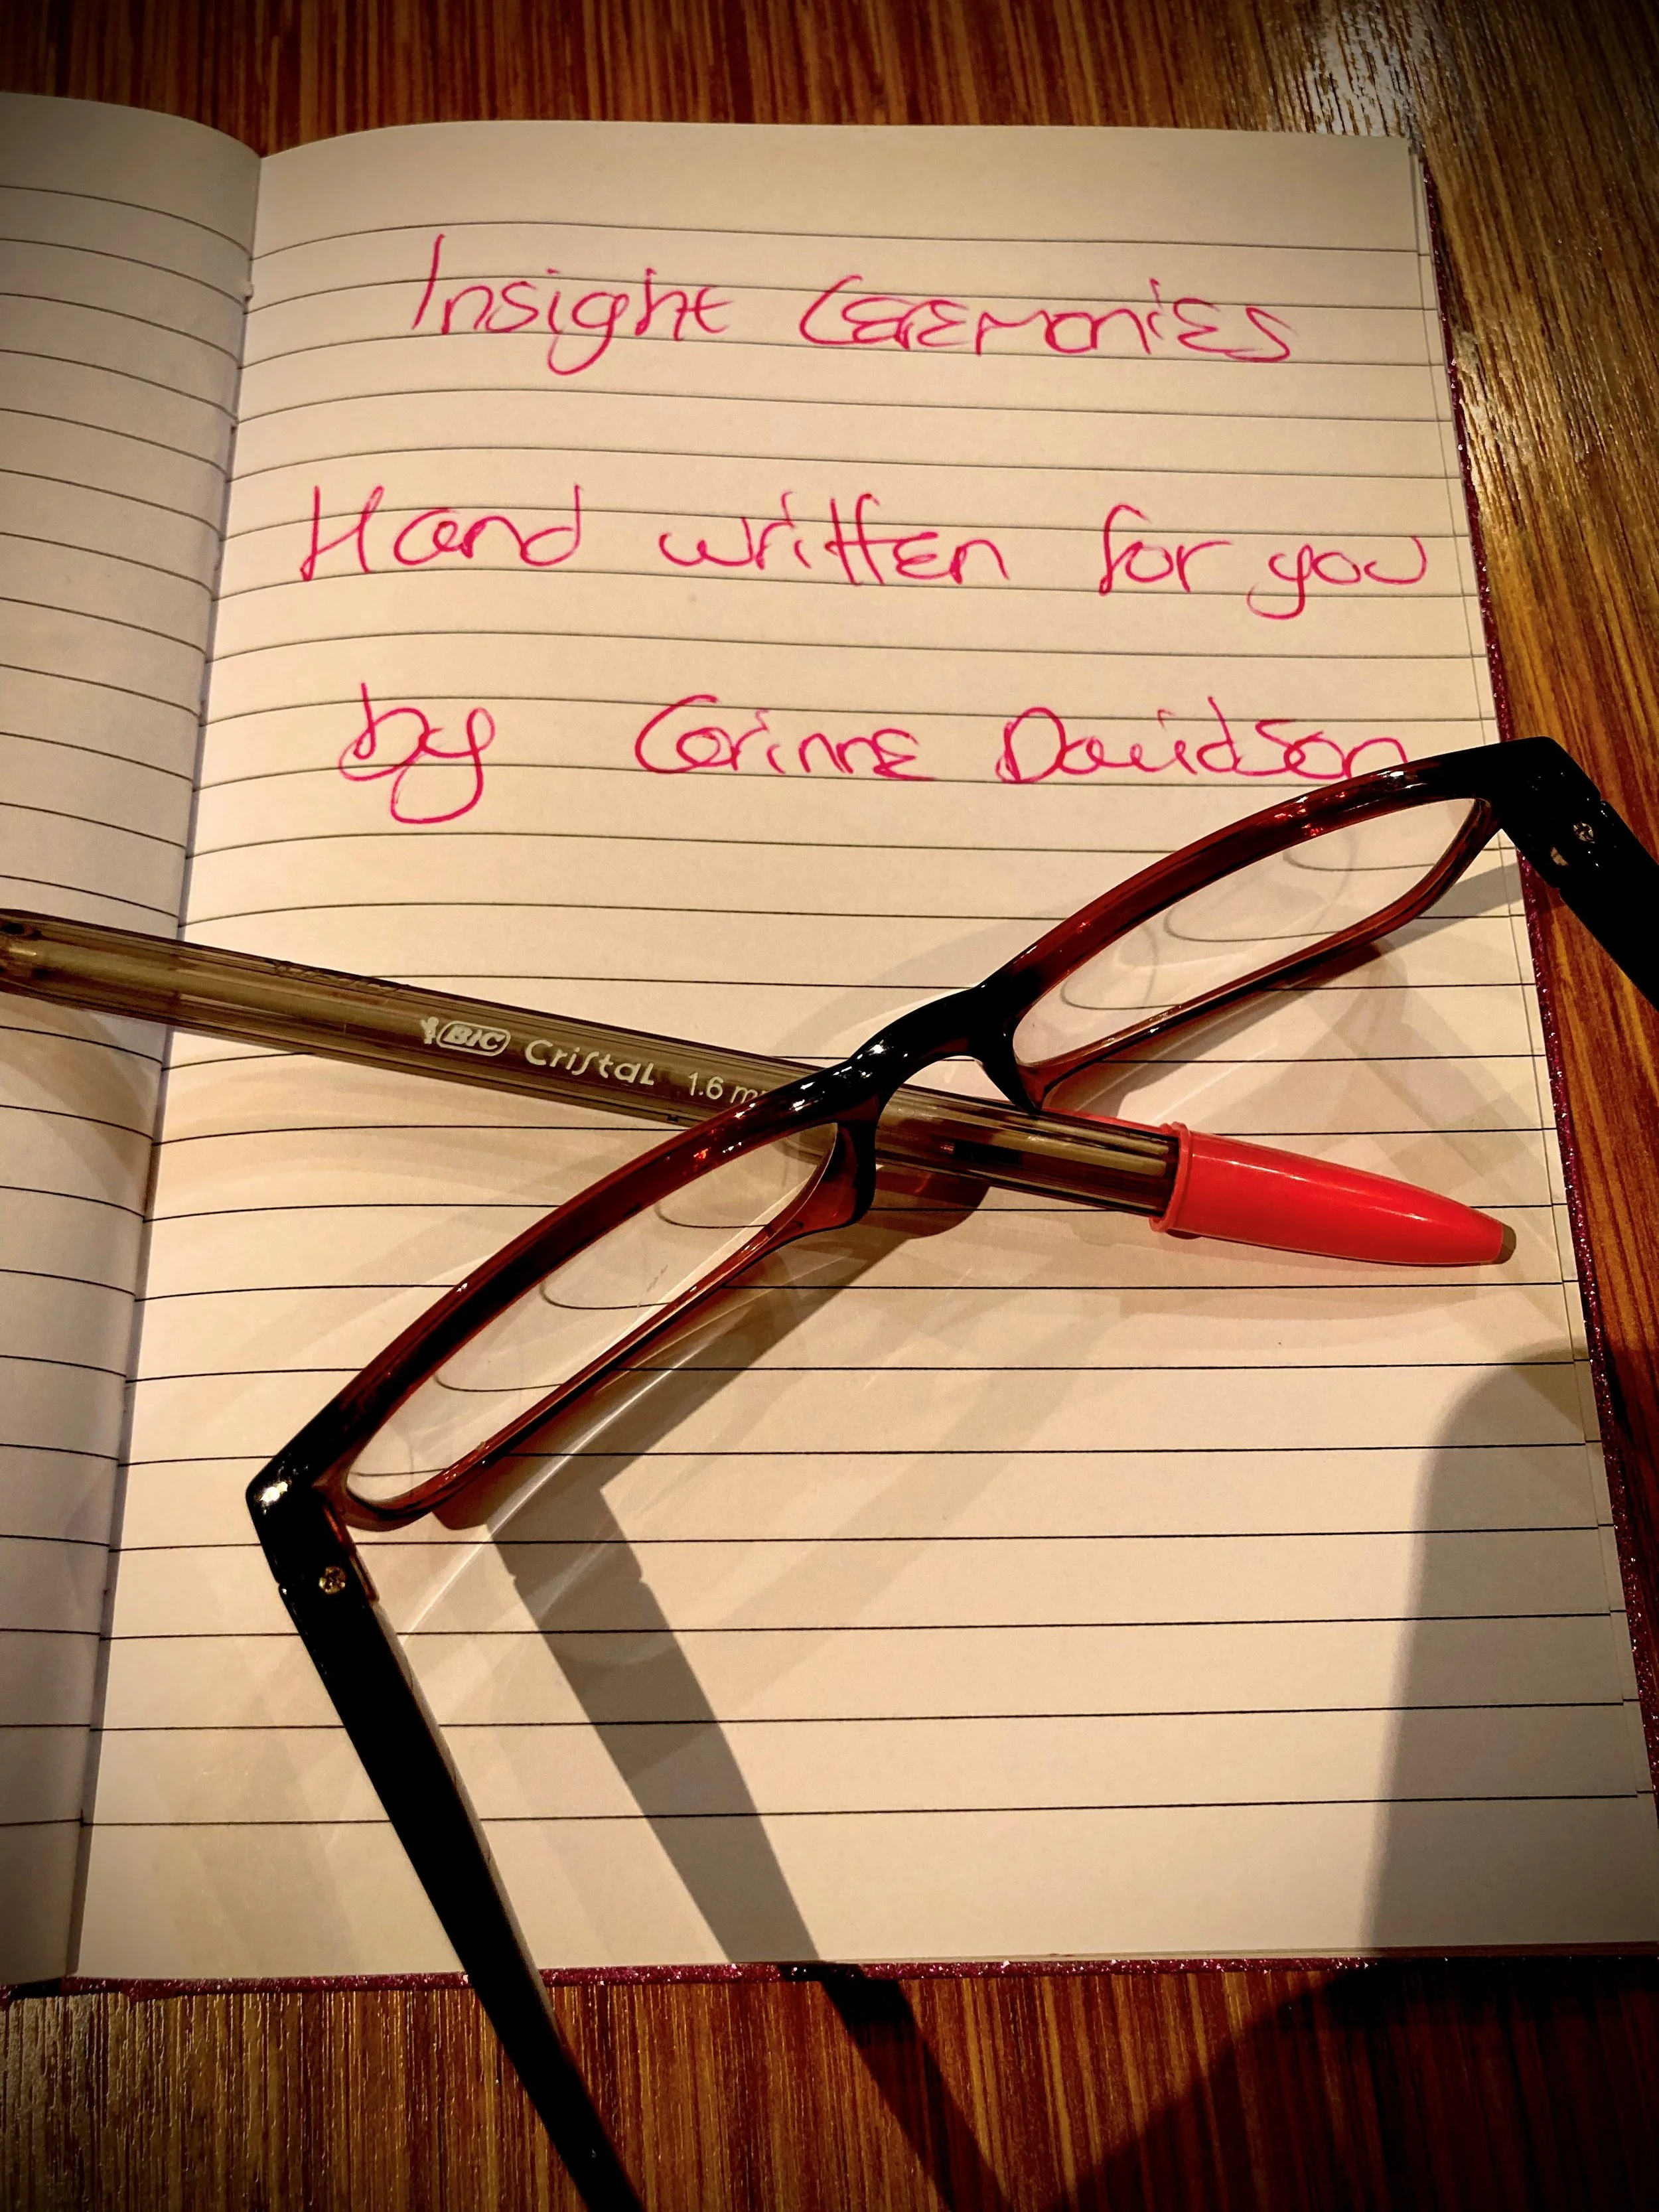 Insight Ceremonies
Hand written for you
by Corinne Davidson
BIC Cristal 1.6 m